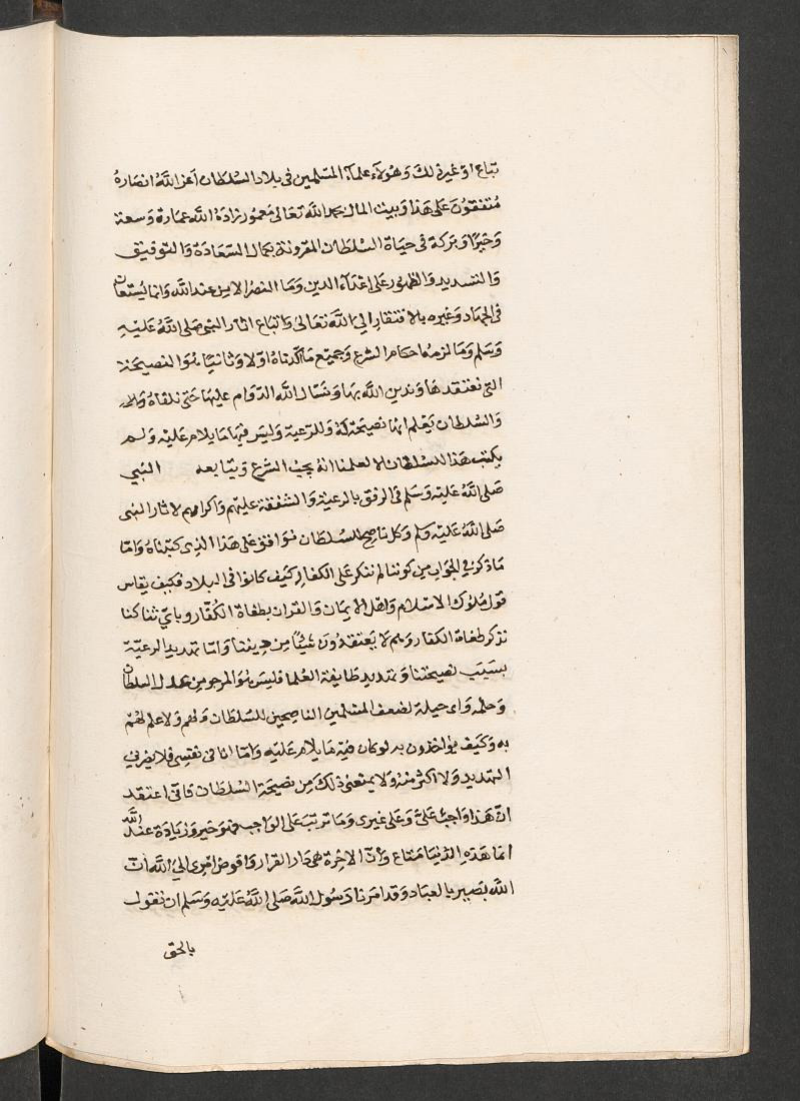 تباع او غير ذلك وهولاء علماء المسلمين في بلاد السلطان اعز الله انصاره
متفقون على هذا وبيت المال بحمد الله تعالى معمور زاده الله عمارة وسعة
وخيرا وبركة في حياة السلطان المقرونة بكمال السعادة والتوفيق
والتسديد والظهور على اعداء الدين وما النصر الا من عند الله وانما يستعان
في الجهاد وغيره بالافتقار الى الله تعالى واتباع اثار النبى صلى الله عليه
وسلم وملازمة احكام الشرع وجميع ما كتبناه اولا وثانيا هو النصيحة
التى نعتقدها وندين الله بها ونسال الله الدوام عليها حتى نلقاه
والسلطان يعلم انها نصيحة له وللرعية وليس فيها ما يلام عليه ولم
يكتب هذا للسلطان الا لعلمنا انه يحب الشرع ومتابعه النبي
صلى الله عليه وسلم في الرفق بالرعية والشفقة عليهم واكرامهم لاثار النبى
صلى الله عليه وسلم وكل ناصح للسلطان موافق على هذا الذى كتبناه واما
ما ذكر في الجواب من كوننا لم ننكر على الكفار كيف كانوا فى البلاد فكيف يقاس
قول ملوك الاسلام واهل الايمان والقران بطغاة الكفار وباي شئ كنا
نذكر طغاة الكفار وهم لا يعتقدون شيئا من ديننا واما تهديد الرعية
بسبب نصيحتنا وتهديد طايفة العلما فليس هو المرجو من عدل السلطان
وحلمه واى حيلة لضعف المسلمين الناصحين للسلطان ولهم ولا علم لهم
به وكيف يؤاخذون به لو كان فيه ما يلام عليه واما انا فى نفسى فلا يضرني
التهديد ولا اكثر منه ولا يمنعني ذلك من نصيحة السلطان فانى اعتقد
ان هذا واجب على وعلى غيرى وما ترتب على الواجب فهو خير وزيادة عند الله
انما هذه الدنيا متاع وان الاخرة هي دار القرار وافوض امرى الى الله ان
الله بصير بالعباد وقد امرنا رسول الله صلى الله عليه وسلم ان نقول
بالحق